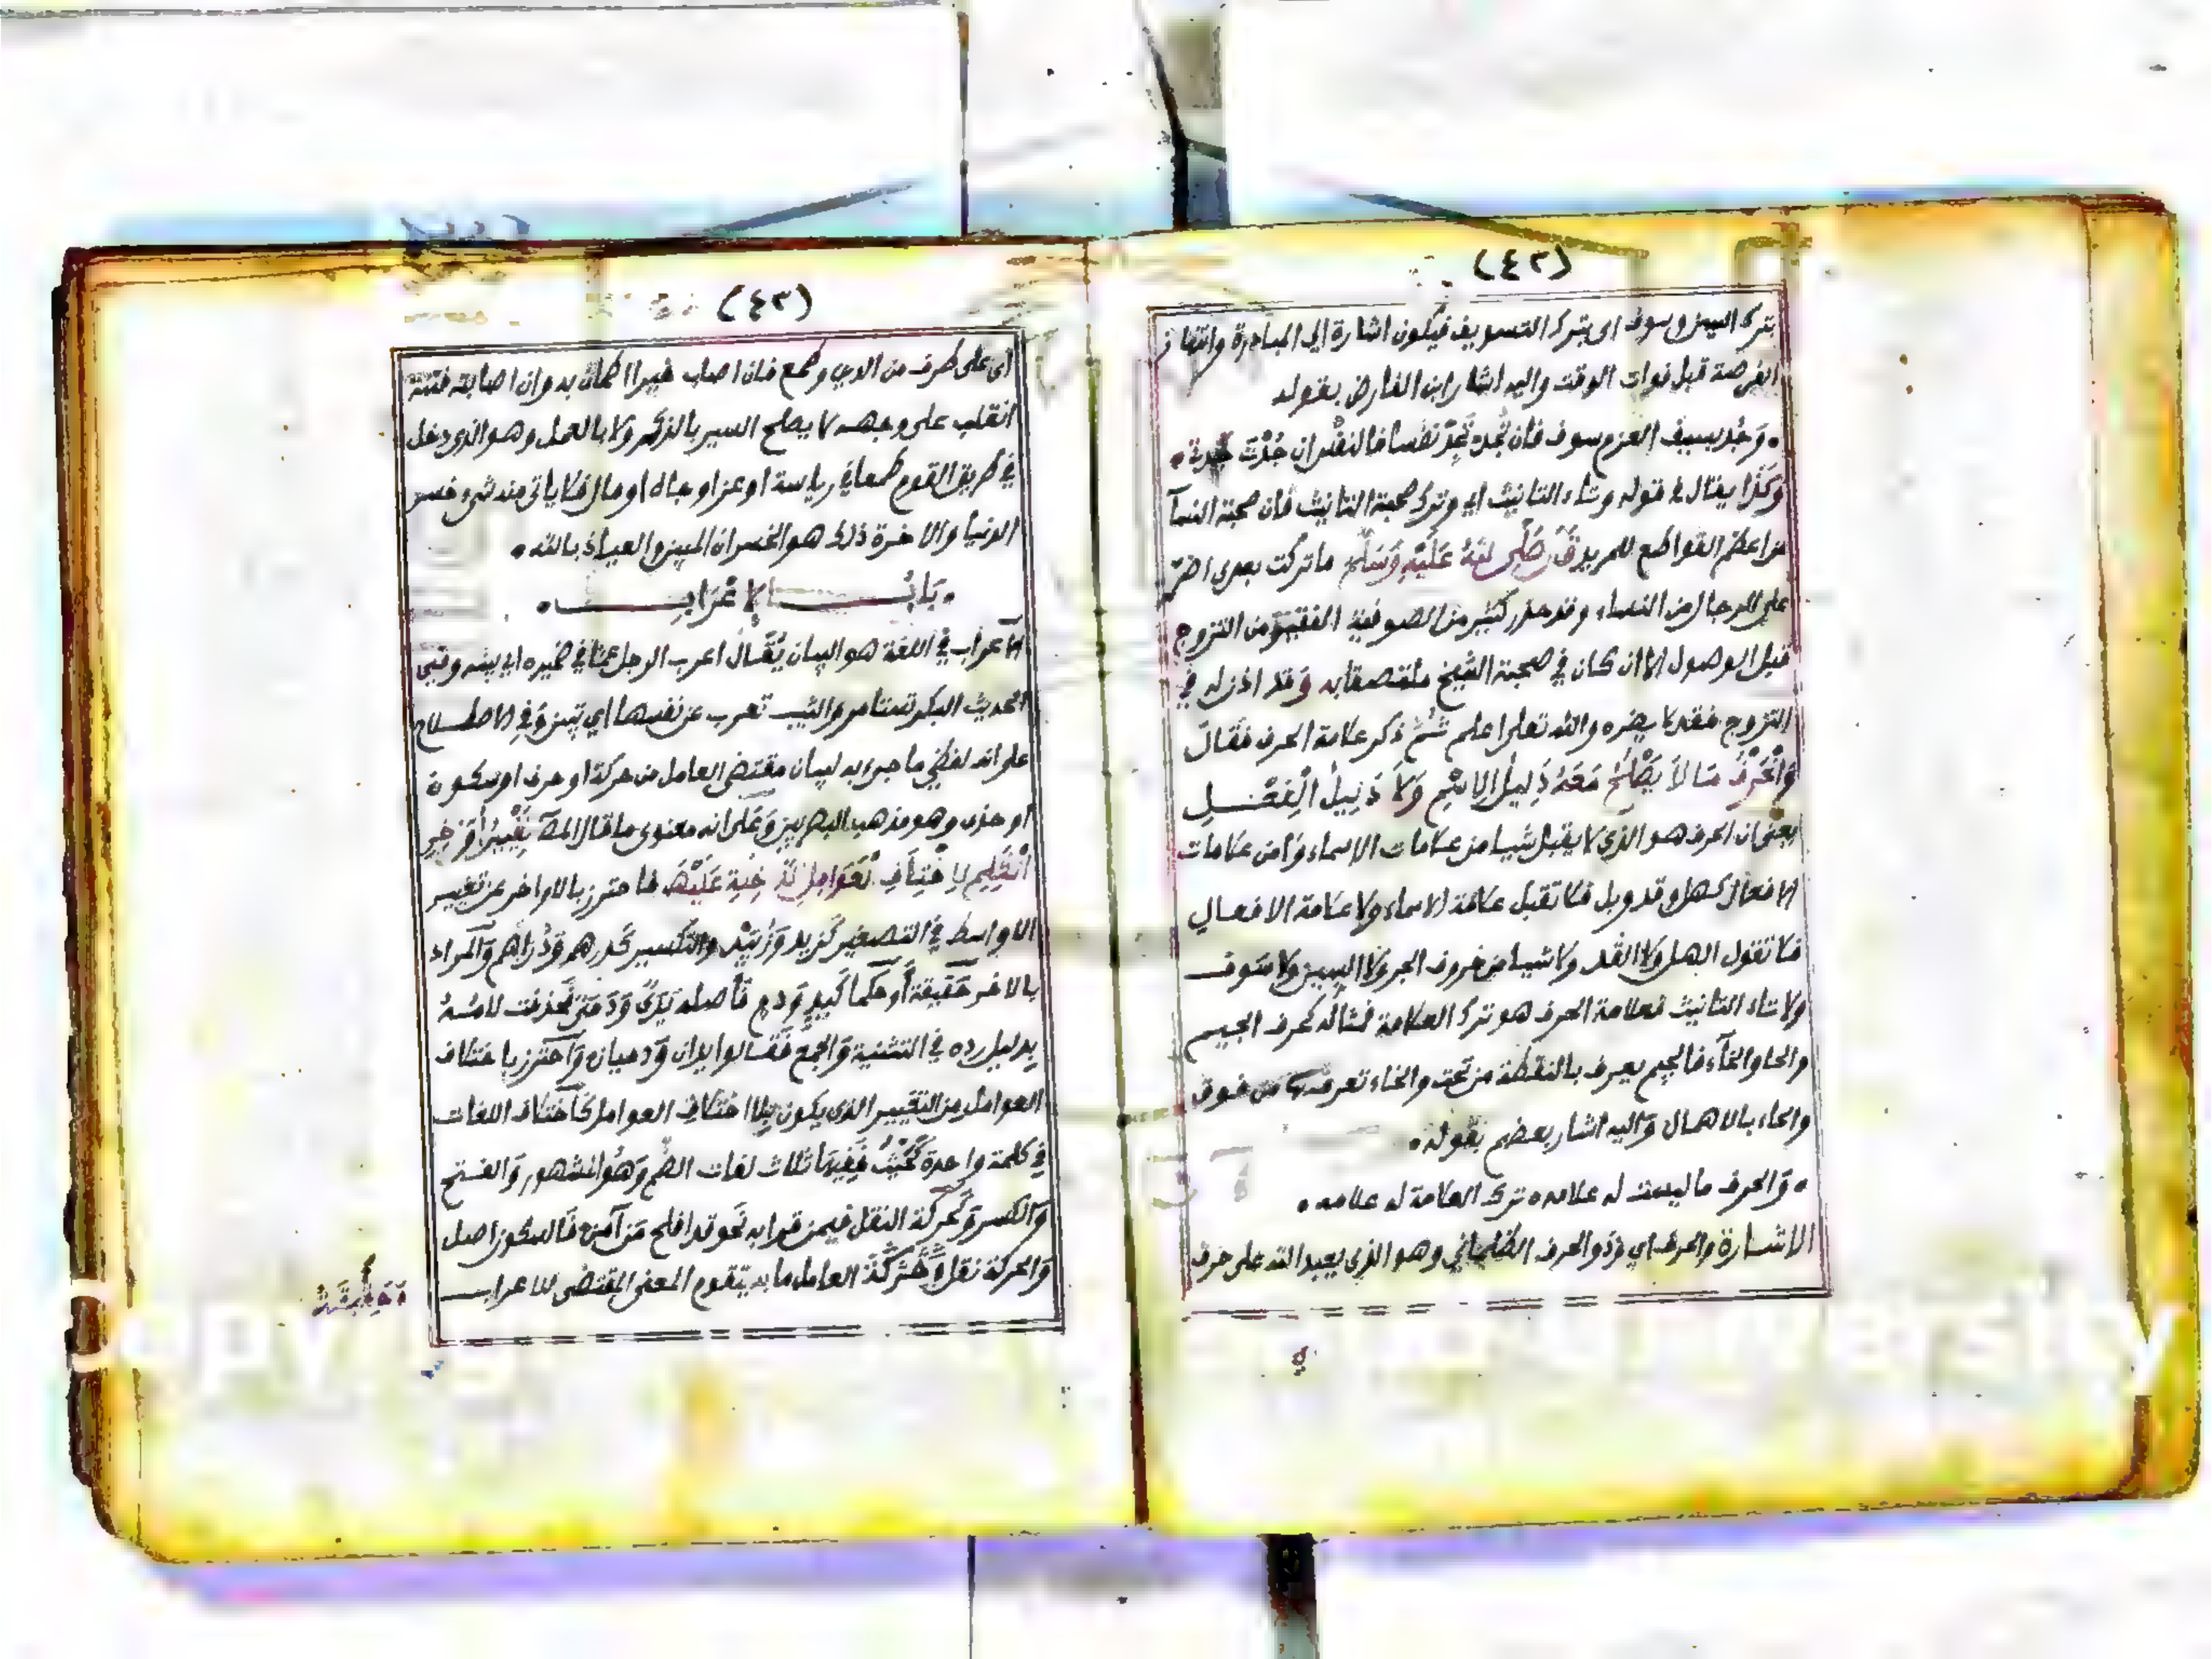 (٤٢)
بترك السين وسوف اى بترك التسويف فيكون اشارة الى المبادرة وانتهاز
الفرصة قبل فوات الوقت واليه اشار ابن الفارض بقوله
وجد بسيف العزم سوف فان تجد تجد نفسا فالنفس ان جدت جدت
وكذا يقال في قوله وتاء التانيث اي وترك صحبة التانيث فان صحبة النسآ
من اعظم القواطع للمريد قال صلى الله عليه وسلم ما تركت بعدى اضر
على الرجال من النساء وقد حذر كثير من الصوفية الفقير من التزوج
قبل الوصول الا ان كان في صحبة الشيخ ملتصقا به وقد اذن له في
التزوج فقد لا يضره والله تعلى اعلم ثم ذكر علامة الحرف فقال
والحرف ما لا يصلح معه دليل الاسم ولا دليل الفعل
يعنى ان الحرف هو الذي لا يقبل شيا من علامات الاسماء ولا من علامات
الافعال كهل وقد وبل فلا تقبل علامة الاسماء ولا علامة الافعال
فلا تقول الهل ولا القد ولا شيا من حروف الجر ولا السين ولا سوف
ولا تاء التانيث فعلامة الحرف هو ترك العلامة فمثاله كحرف الجيم
والحا والخآء فالجيم يعرف بالنقطة من تحت والخاء تعرف من فوق
والحاء بالاهمال واليه اشار بعضهم بقوله
والحرف ما ليست له علامه ترك العلامة له علامه
الاشارة والحرف اي وذو الحرف وهو الذي يعبد الله على حرف
(٤٣)
اى على طرف من الدين وطمع فان اصاب خيرا اطمان به وان اصابته فتنة
انقلب على وجهه لا يصلح السير بالذكر ولا بالعمل وهو الذى دخل
في طريق القوم طمعا في رياسة او عز او جاه او مال فلا ياتى منه شىء خسر
الدنيا والاخرة ذلك هو الخسران المبين والعياذ بالله
باب الاعراب
الاعراب في اللغة هو البيان يقال اعرب الرجل عما في ضميره اى بينه وفي
الحديث البكر تستامر والثيب تعرب عن نفسها اي تبين وفي الاصطلاح
على انه لفظي ما جىء به لبيان مقتضى العامل من حركة او حرف او سكون
او حذف وهو مذهب البصريين وعلى انه معنوى ما قال المص تغيير اواخر
الكلم لاختلاف العوامل الداخلة عليها فاحترز بالاواخر عن تغيير
الاواسط في التصغير كزيد وزييد والتكسير كدرهم ودراهم والمراد
بالاخر حقيقة او حكما كيد ودم فاصله يدى ودمى فحذفت لامه
بدليل رده في التثنية والجمع فقالوا يديان ودميان واحترز باختلاف
العوامل من التغيير الذى يكون بلا اختلاف العوامل كاختلاف اللغات
في كلمة واحدة كحيث ففيها ثلاث لغات الضم وهو المشهور والفتح
والكسر وكحركة النقل فيمن قرا به نحو قد افلح من آمن فالسكون اصل
والحركة نقل العامل ما به يتقوم المعنى المقتضى للاعراب